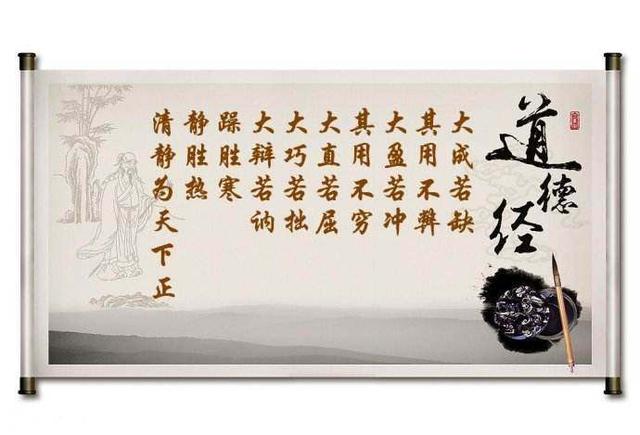 道德经
大成若缺
其用不弊
大盈若冲
其用不穷
大直若屈
大巧若拙
大辩若讷
躁胜寒
静胜热
清静为天下正